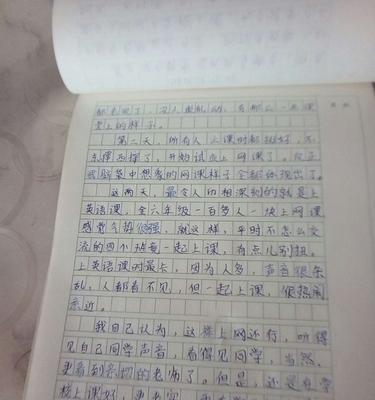 都来晚了,没人敢乱动,有那么一点课
堂上的样子。
第二天,所有人上课时都挺好,不
东撞西撞了,开始试点上网课了。反正
我脑英中想象的网课样子全都体现出了。
这两天,最令人印相深刻的就是上
英语课,全六年级一百多人一块上网课
感觉气势很强,就这样,平时不怎么交
流的四个班要一起上课,有点儿别扭。
上英语课时最卡,因为人多,声音很杂
乱,人都看不见,但一起上课,很热闹
亲近。
我自己认为,这楼上网还行,听得
见自己同学声音,看得见同学,当然,
更看到亲切的老师了。但是,还是在学
校上课好,更